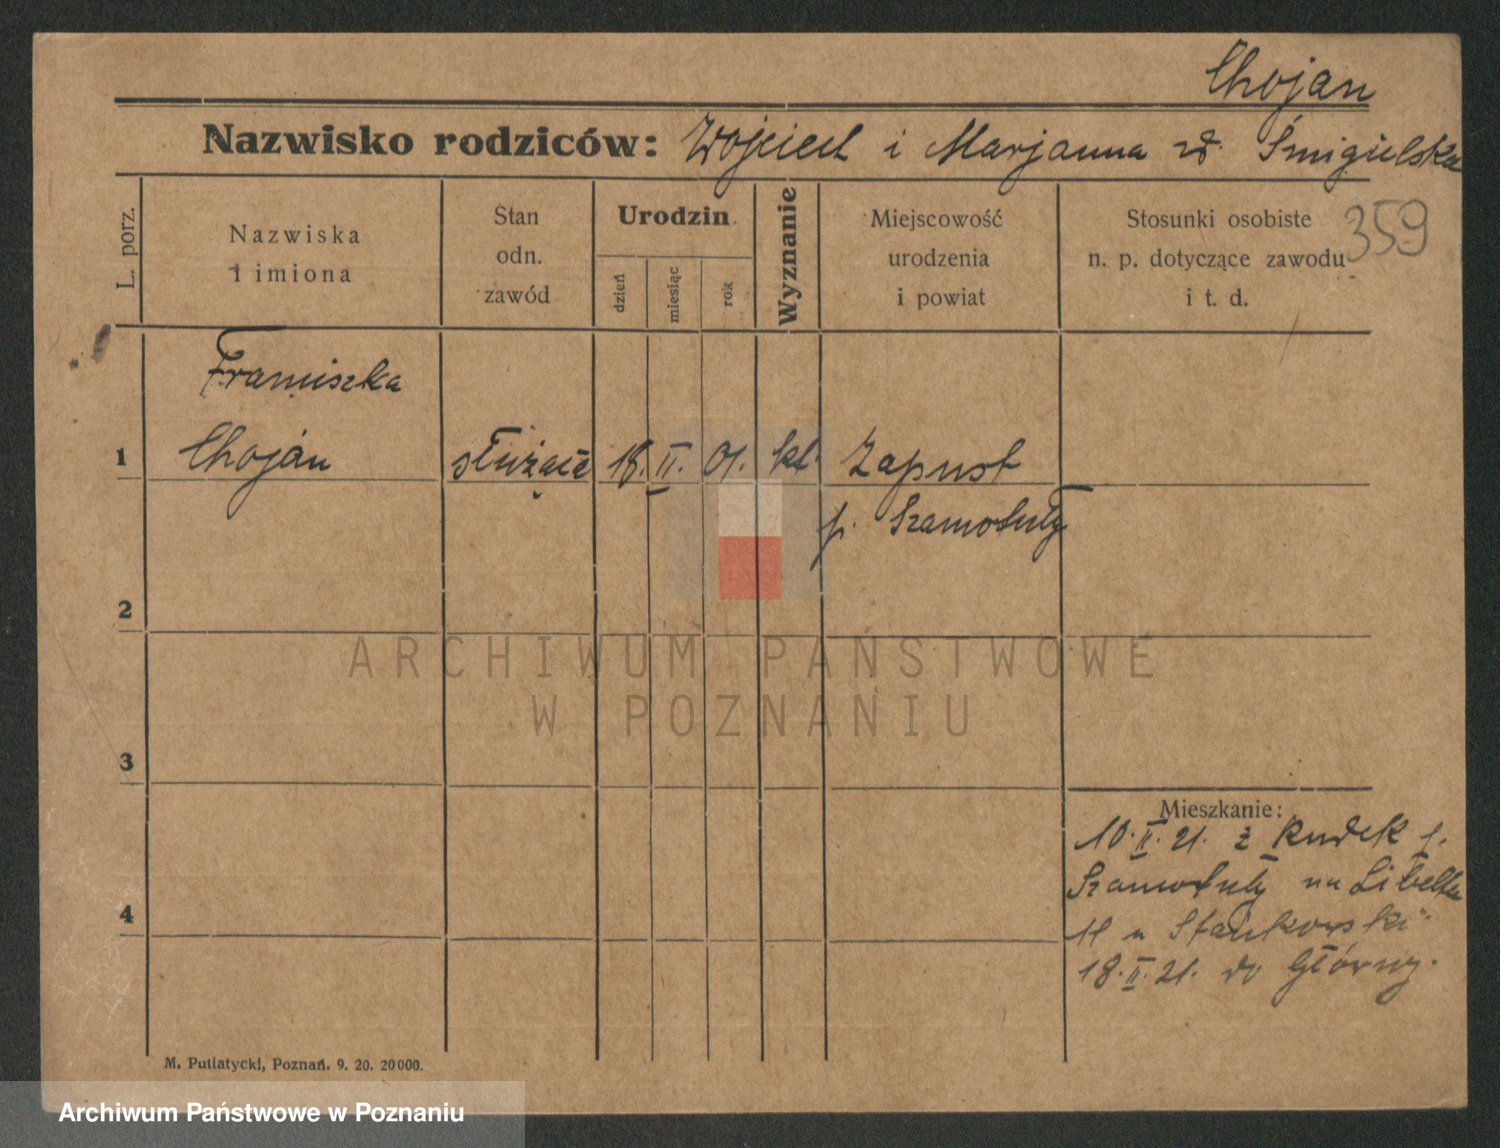 Chojan
Nazwisko rodziców: Wojciech i Marjanna zd. Śmigielska
359
L. porz.
Nazwiska
i imiona
Stan
odn.
zawód
Urodzin
dzień
miesiąc
rok
Wyznanie
Miejscowość
urodzenia
i powiat
Stosunki osobiste
n. p. dotyczące zawodu
i t. d.
Franciszka
1 Chojan służąca 18. II. 01. kt. Zapust
p. Szamotuły
2
3
4
Mieszkanie:
10.II.21. z Rudek p.
Szamotuły na Libelta
11 u Stankowski
18.II.21. do Główny.
M. Putiatycki, Poznań. 9. 20. 20000.
ARCHIWUM PAŃSTWOWE
W POZNANIU
Archiwum Państwowe w Poznaniu